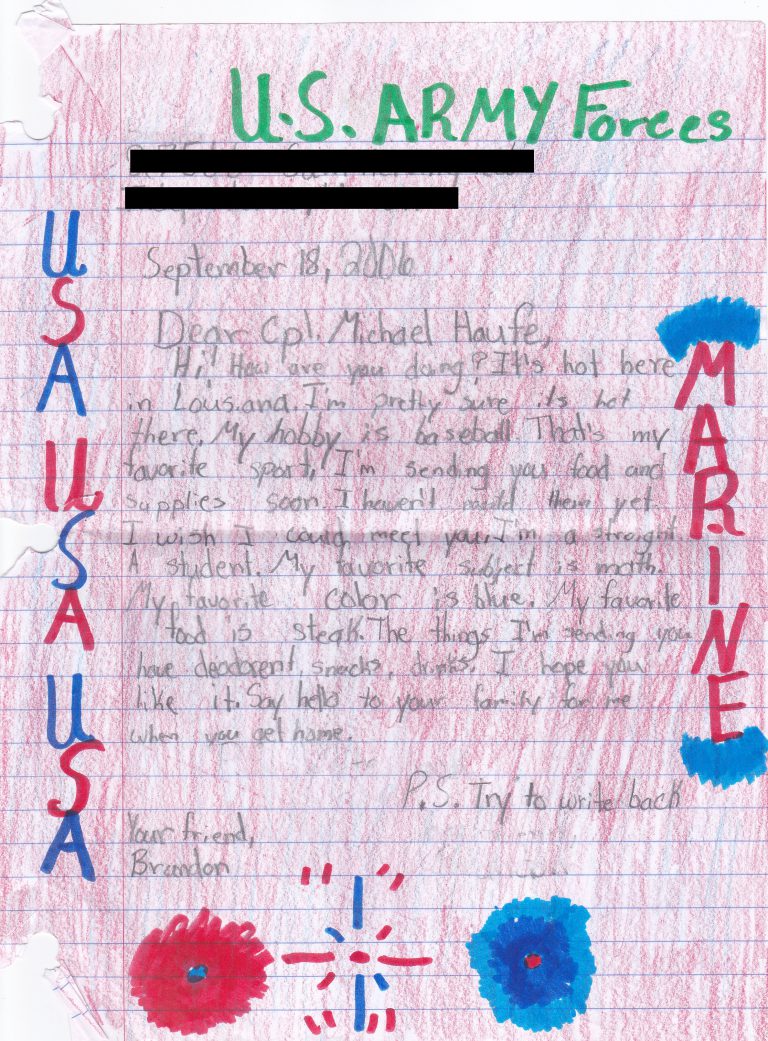 U.S. ARMY Forces
September 18, 2006
Dear Cpl. Michael Haufe,
Hi! How are you doing? It's hot here
in Louisiana. I'm pretty sure its hot
there. My hobby is baseball. That's my
favorite sport. I'm sending you food and
supplies soon. I haven't maild them yet.
I wish I could meet you. I'm a straight
A student. My favorite subject is math.
My favorite color is blue. My favorite
food is steak. The things I'm sending you
have deodorent, snacks, drinks. I hope you
like it. Say hello to your family for me
when you get home.
P.S. Try to write back
Your friend,
Brandon
USA USA USA
MARINE